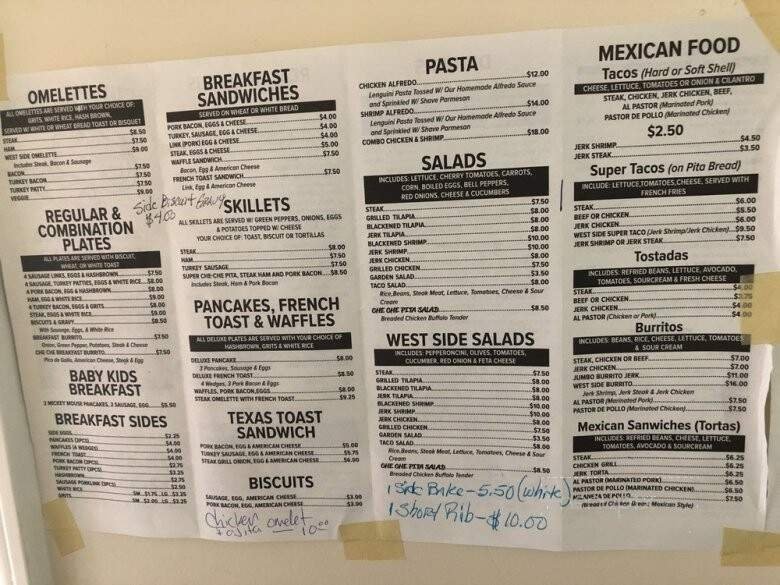 OMELETTES
ALL OMELETTES ARE SERVED WITH YOUR CHOICE OF:
GRITS, WHITE RICE, HASH BROWN,
SERVED W/ WHITE OR WHEAT BREAD TOAST OR BISQUET
STEAK $8.50
HAM $7.50
WEST SIDE OMELETTE $9.00
Includes Steak, Bacon & Sausage
BACON $7.50
TURKEY BACON $7.50
TURKEY PATTY $7.50
VEGGIE $9.00
REGULAR &
COMBINATION
PLATES
ALL PLATES ARE SERVED WITH BISCUIT,
WHEAT, OR WHITE TOAST
4 SAUSAGE LINKS, EGGS & HASHBROWN $7.50
4 SAUSAGE, TURKEY PATTIES, EGGS & WHITE RICE $8.00
4 PORK BACON, EGG & HASHBROWN $8.00
HAM, EGG & WHITE RICE $9.00
4 TURKEY BACON, EGGS & GRITS $8.00
STEAK, EGGS & WHITE RICE $9.00
BISCUITS & GRAVY $8.50
With Sausage, Eggs, & White Rice
BREAKFAST BURRITO $7.50
Onion, Green Pepper, Potatoes, Steak & Cheese
CHE CHE BREAKFAST BURRITO $7.50
Pico de Gallo, American Cheese, Steak & Egg
BABY KIDS
BREAKFAST
3 MICKEY MOUSE PANCAKES, 3 SAUSAGE, EGG $5.50
BREAKFAST SIDES
SIDE EGGS $2.25
PANCAKES (3PCS) $2.25
WAFFLES (4 WEDGES) $4.00
FRENCH TOAST $4.00
PORK BACON (3PCS) $2.25
TURKEY PATTY (3PCS) $3.25
HASHBROWN $2.25
SAUSAGE PORKLINK (3PCS) $2.50
WHITE RICE SM. $1.75 LG. $3.25
GRITS SM. $2.00 LG. $3.25
BREAKFAST
SANDWICHES
SERVED ON WHEAT OR WHITE BREAD
PORK BACON, EGGS & CHEESE $4.00
TURKEY, SAUSAGE, EGG & CHEESE $4.00
LINK (PORK) EGG & CHEESE $4.00
STEAK, EGGS & CHEESE $5.00
WAFFLE SANDWICH $7.50
Bacon, Egg & American Cheese
FRENCH TOAST SANDWICH $7.50
Link, Egg & American Cheese
Side Biscuit Gravy
$4.00
SKILLETS
ALL SKILLETS ARE SERVED W/ GREEN PEPPERS, ONIONS, EGGS
& POTATOES TOPPED W/ CHEESE
YOUR CHOICE OF: TOAST, BISCUIT OR TORTILLAS
STEAK $8.00
HAM $7.50
TURKEY SAUSAGE $7.50
SUPER CHE-CHE PITA, STEAK HAM AND PORK BACON $8.50
Includes Steak, Ham & Pork Bacon
PANCAKES, FRENCH
TOAST & WAFFLES
ALL DELUXE PLATES ARE SERVED WITH YOUR CHOICE OF
HASHBROWN, GRITS & WHITE RICE
DELUXE PANCAKE $8.00
3 Pancakes, Sausage & Eggs
DELUXE FRENCH TOAST $8.50
4 Wedges, 3 Pork Bacon & Eggs
WAFFLES, PORK BACON, EGGS $8.00
STEAK OMELETTE WITH FRENCH TOAST $9.25
TEXAS TOAST
SANDWICH
PORK BACON, EGG & AMERICAN CHEESE $5.00
TURKEY SAUSAGE, EGG & AMERICAN CHEESE $5.75
STEAK GRILL ONION, EGG & AMERICAN CHEESE $6.00
BISCUITS
SAUSAGE, EGG, AMERICAN CHEESE $3.00
PORK BACON, EGG, AMERICAN CHEESE $3.00
Chicken omelet
10.00
PASTA
CHICKEN ALFREDO $12.00
Lenguini Pasta Tossed W/ Our Homemade Alfredo Sauce
and Sprinkled W/ Shave Parmesan
SHRIMP ALFREDO $14.00
Lenguini Pasta Tossed W/ Our Homemade Alfredo Sauce
and Sprinkled W/ Shave Parmesan
COMBO CHICKEN & SHRIMP $18.00
SALADS
INCLUDES: LETTUCE, CHERRY TOMATOES, CARROTS,
CORN, BOILED EGGS, BELL PEPPERS,
RED ONIONS, CHEESE & CUCUMBERS
STEAK $7.50
GRILLED TILAPIA $8.00
BLACKENED TILAPIA $8.00
JERK TILAPIA $8.00
BLACKENED SHRIMP $10.00
JERK SHRIMP $10.00
JERK CHICKEN $8.00
GRILLED CHICKEN $7.50
GARDEN SALAD $3.50
TACO SALAD $8.00
Rice, Beans, Steak Meat, Lettuce, Tomatoes, Cheese & Sour
Cream
CHE CHE PITA SALAD $8.50
Breaded Chicken Buffalo Tender
WEST SIDE SALADS
INCLUDES: PEPPERONCINI, OLIVES, TOMATOES,
CUCUMBER, RED ONION & FETA CHEESE
STEAK $7.50
GRILLED TILAPIA $8.00
BLACKENED TILAPIA $8.00
JERK TILAPIA $8.00
BLACKENED SHRIMP $10.00
JERK SHRIMP $10.00
JERK CHICKEN $8.00
GRILLED CHICKEN $7.50
GARDEN SALAD $3.50
TACO SALAD $8.00
Rice, Beans, Steak Meat, Lettuce, Tomatoes, Cheese & Sour
Cream
CHE CHE PITA SALAD $8.50
Breaded Chicken Buffalo Tender
1 Side Brike - 5.50 (white)
1 Short Rib - $10.00
MEXICAN FOOD
Tacos (Hard or Soft Shell)
CHEESE, LETTUCE, TOMATOES OR ONION & CILANTRO
STEAK, CHICKEN, JERK CHICKEN, BEEF,
AL PASTOR (Marinated Pork)
PASTOR DE POLLO (Marinated Chicken)
$2.50
JERK SHRIMP $4.50
JERK STEAK $3.50
Super Tacos (on Pita Bread)
INCLUDE: LETTUCE,TOMATOES,CHEESE, SERVED WITH
FRENCH FRIES
STEAK $6.00
BEEF OR CHICKEN $5.50
JERK CHICKEN $6.00
WEST SIDE SUPER TACO (Jerk Shrimp/Jerk Chicken) $9.50
JERK SHRIMP OR JERK STEAK $7.50
Tostadas
INCLUDES: REFRIED BEANS, LETTUCE, AVOCADO,
TOMATOES, SOURCREAM & FRESH CHEESE
STEAK $4.00
BEEF OR CHICKEN $3.75
JERK CHICKEN $4.00
AL PASTOR (Chicken or Pork) $4.00
Burritos
INCLUDES: BEANS, RICE, CHEESE, LETTUCE, TOMATOES
& SOUR CREAM
STEAK, CHICKEN OR BEEF $7.00
JERK CHICKEN $7.00
JUMBO BURRITO JERK $11.00
WEST SIDE BURRITO $16.00
Jerk Shrimp, Jerk Steak & Jerk Chicken
AL PASTOR (Marinated Pork) $7.50
PASTOR DE POLLO (Marinated Chicken) $7.50
Mexican Sanwiches (Tortas)
INCLUDES: REFRIED BEANS, CHEESE, LETTUCE,
TOMATOES, AVOCADO & SOURCREAM
STEAK $6.25
CHICKEN GRILL $6.25
JERK TORTA $6.25
AL PASTOR (MARINATED PORK) $6.50
PASTOR DE POLLO (MARINATED CHICKEN) $6.50
MILANEZA DE POLLO $7.50
(Breaded Chicken Mexican Style)